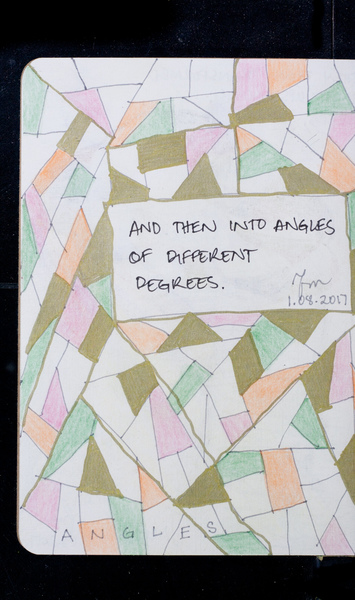 AND THEN INTO ANGLES
OF DIFFERENT
DEGREES.
1.08.2017
ANGLES